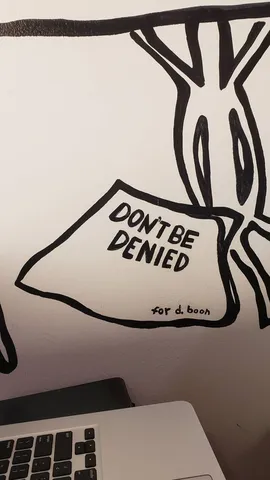 DON'T BE
DENIED
for d. boon